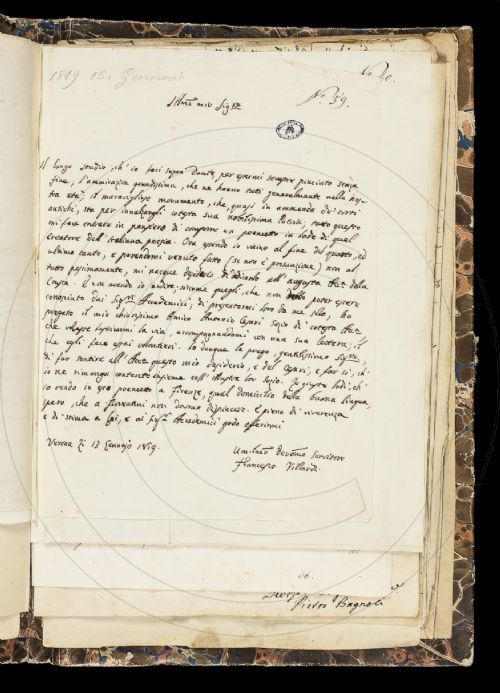 1819. 13. Gennaio
No. 40.
No. 59.
Illmo mio Sigre
Il lungo studio, ch' io feci sopra Dante, per esserci sempre piaciuto senza
fine, l'ammirazion grandissima, che ne hanno tutti generalmente nella nos-
tra età, il maraviglioso monumento, che, quasi in ammenda de' torti
antichi, sta per innalzargli cotesta sua nobilissima Patria; tutto questo
mi fece entrare in pensiero di comporre un poemetto in lode di quel
Creatore dell' italiana poesia. Ora essendo io vicino al fine del quarto, ed
ultimo canto, e parendomi venuto fatto (se non è presunzione) non al
tutto pessimamente, mi nacque desiderio di dedicarlo all' augusta Accad. della
Crusca. E non avendo io ardire, siccome quegli, che non debbo poter essere
conosciuto dai Sigri Accademici, di presentarmi loro da me solo, ho
pregato il mio chiarissimo Amico Antonio Cesari socio di cotesta Accad.
che volesse aprirmi la via, accompagnandomi con una sua lettera; il
che egli fece assai volentieri. Io dunque la prego, gentilissimo Sigre,
di far sentire all' Accad. questo mio desiderio, e del Cesari, e far sì, ch'
io ne rimanga contento insieme coll' illustre lor Socio. Le giuste lodi, ch'
io rendo in esso poemetto a Firenze, qual domicilio della buona lingua,
spero, che a' fiorentini non devono dispiacere. E pieno di riverenza
e di stima a Lei, e ai Sigri Accademici godo offerirmi
Verona li 13 Gennajo 1819.
Umilmo Devomo Servitore
Francesco Villardi.
Pietro Bagnoli